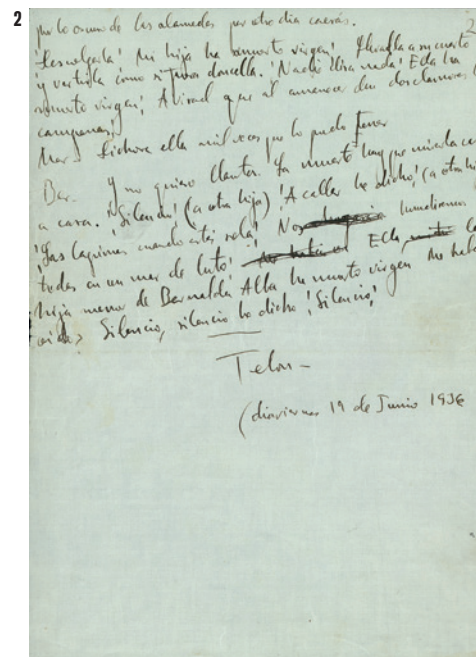 2
por lo oscuro de las alamedas pero otro dia caerás.
Descolgarla! Mi hija ha muerto virgen! Llevadla a su cuarto
y vestirla como si fuera doncella. ¡Nadie dira nada! Ella ha
muerto virgen! Avisad que al amanecer den dos clamores las
campanas!
Mar - Dichosa ella mil veces que lo pudo tener
Ber. Y no quiero llantos. La muerte hay que mirarla cara
a cara. ¡Silencio! (a otra hija) ¡A callar he dicho! (a otra hija)
¡Las lagrimas cuando estés sola! Nos hundiremos
todas en un mar de luto! Ella la
hija menor de Bernalda Alba ha muerto virgen Me habeis
oido? Silencio, silencio he dicho ¡Silencio!
Telon -
(dia viernes 19 de Junio 1936